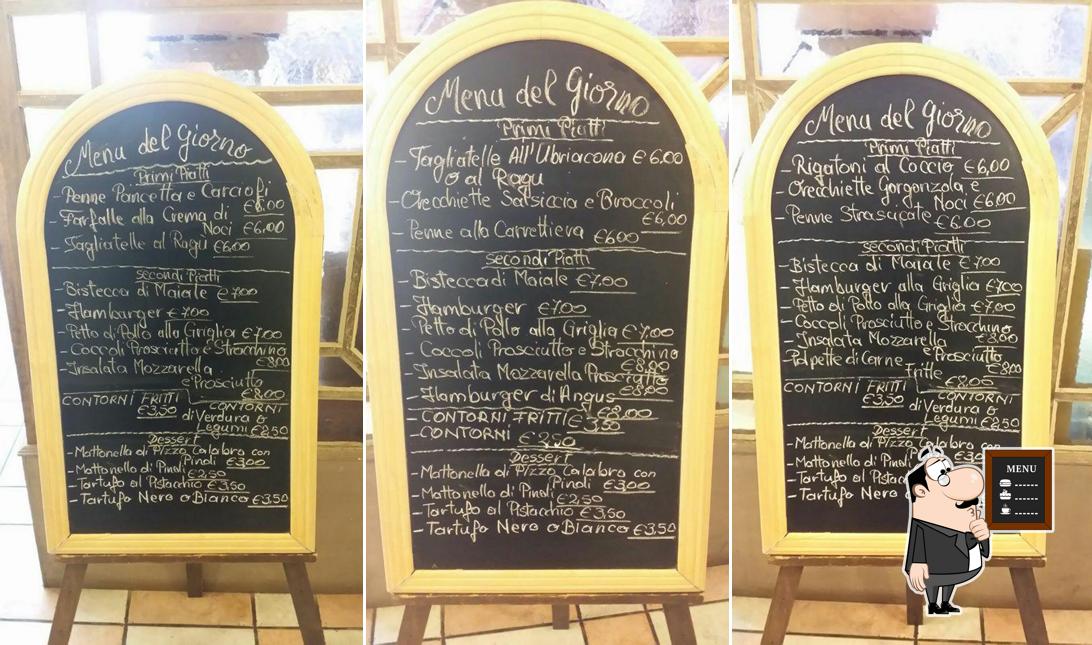 Menu del Giorno
Primi Piatti
- Penne Pancetta e Carciofi
€6,00
- Farfalle alla Crema di
Noci €6,00
- Tagliatelle al Ragù €6,00
secondi Piatti
- Bistecca di Maiale €7,00
- Hamburger €7,00
- Petto di Pollo alla Griglia €7,00
- Coccoli Prosciutto e Stracchino
€8,00
- Insalata Mozzarella
e Prosciutto
€8,00
CONTORNI FRITTI
€3,50
CONTORNI
di Verdura o
Legumi €2,50
Dessert
- Mattonella di Pizzo Calabro con
Pinoli €3,00
- Mattonella di Pinoli
- Tartufo al Pistacchio €3,50
- Tartufo Nero o Bianco €3,50
Menu del Giorno
Primi Piatti
- Tagliatelle All'Ubriacona €6,00
o al Ragu
- Orecchiette Salsiccia e Broccoli
€6,00
- Penne alla Carrettiera €6,00
secondi Piatti
- Bistecca di Maiale €7,00
- Hamburger €7,00
- Petto di Pollo alla Griglia €7,00
- Coccoli Prosciutto e Stracchino
€8,00
- Insalata Mozzarella Prosciutto
€8,00
- Hamburger di Angus
€8,00
- CONTORNI FRITTI €3,50
- CONTORNI
€2,50
Dessert
- Mattonella di Pizzo Calabro con
Pinoli €3,00
- Mattonella di Pinoli
€2,50
- Tartufo al Pistacchio €3,50
- Tartufo Nero o Bianco €3,50
Menu del Giorno
Primi Piatti
- Rigatoni al Coccio €6,00
- Orecchiette Gorgonzola e
Noci €6,00
- Penne Strascicate €6,00
secondi Piatti
- Bistecca di Maiale €7,00
- Hamburger alla Griglia €7,00
- Petto di Pollo alla Griglia €7,00
- Coccoli Prosciutto e Stracchino
€8,00
- Insalata Mozzarella
e Prosciutto
- Polpette di Carne
Fritte
€8,00
CONTORNI FRITTI
€3,50
CONTORNI
di Verdura o
Legumi €2,50
Dessert
- Mattonella di Pizzo Calabro con
- Mattonella di Pinoli
- Tartufo al
- Tartufo Nero o
MENU